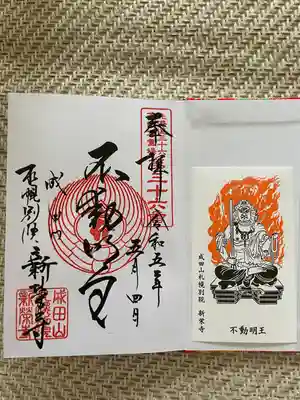 奉拝 令和五年
五月四日
不動明王
成田山
札幌別院 新栄寺
成田山
新栄寺
成田山札幌別院 新栄寺
不動明王